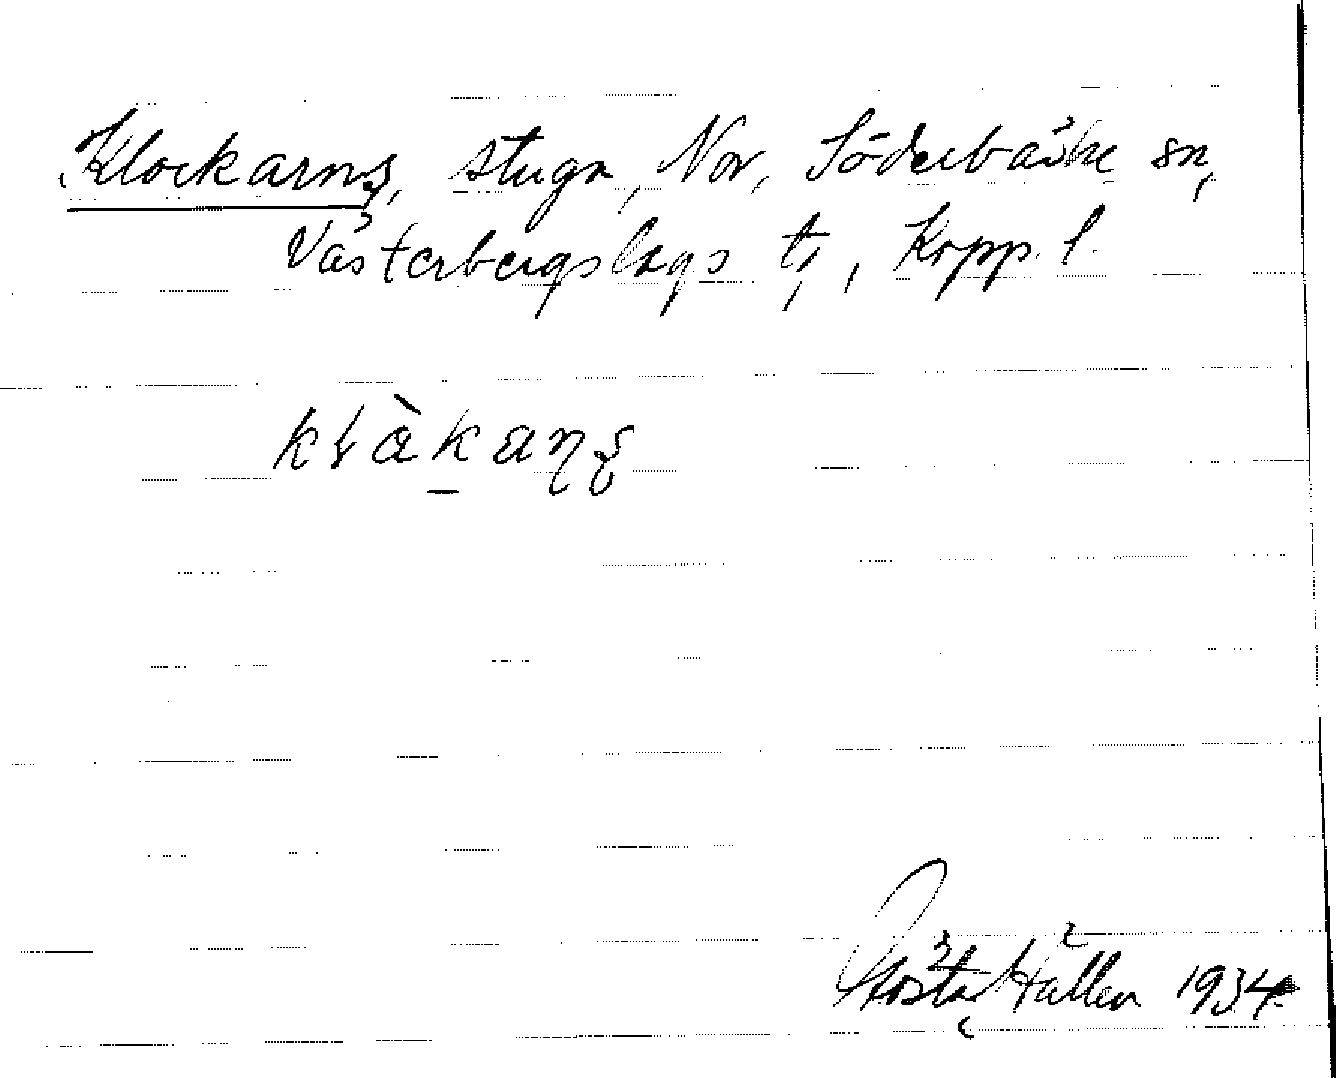 Klockarns, stuga, Nor, Söderbärke sn,
Västerbergslags t., Kopp. l.
Gösta Hällen 1934